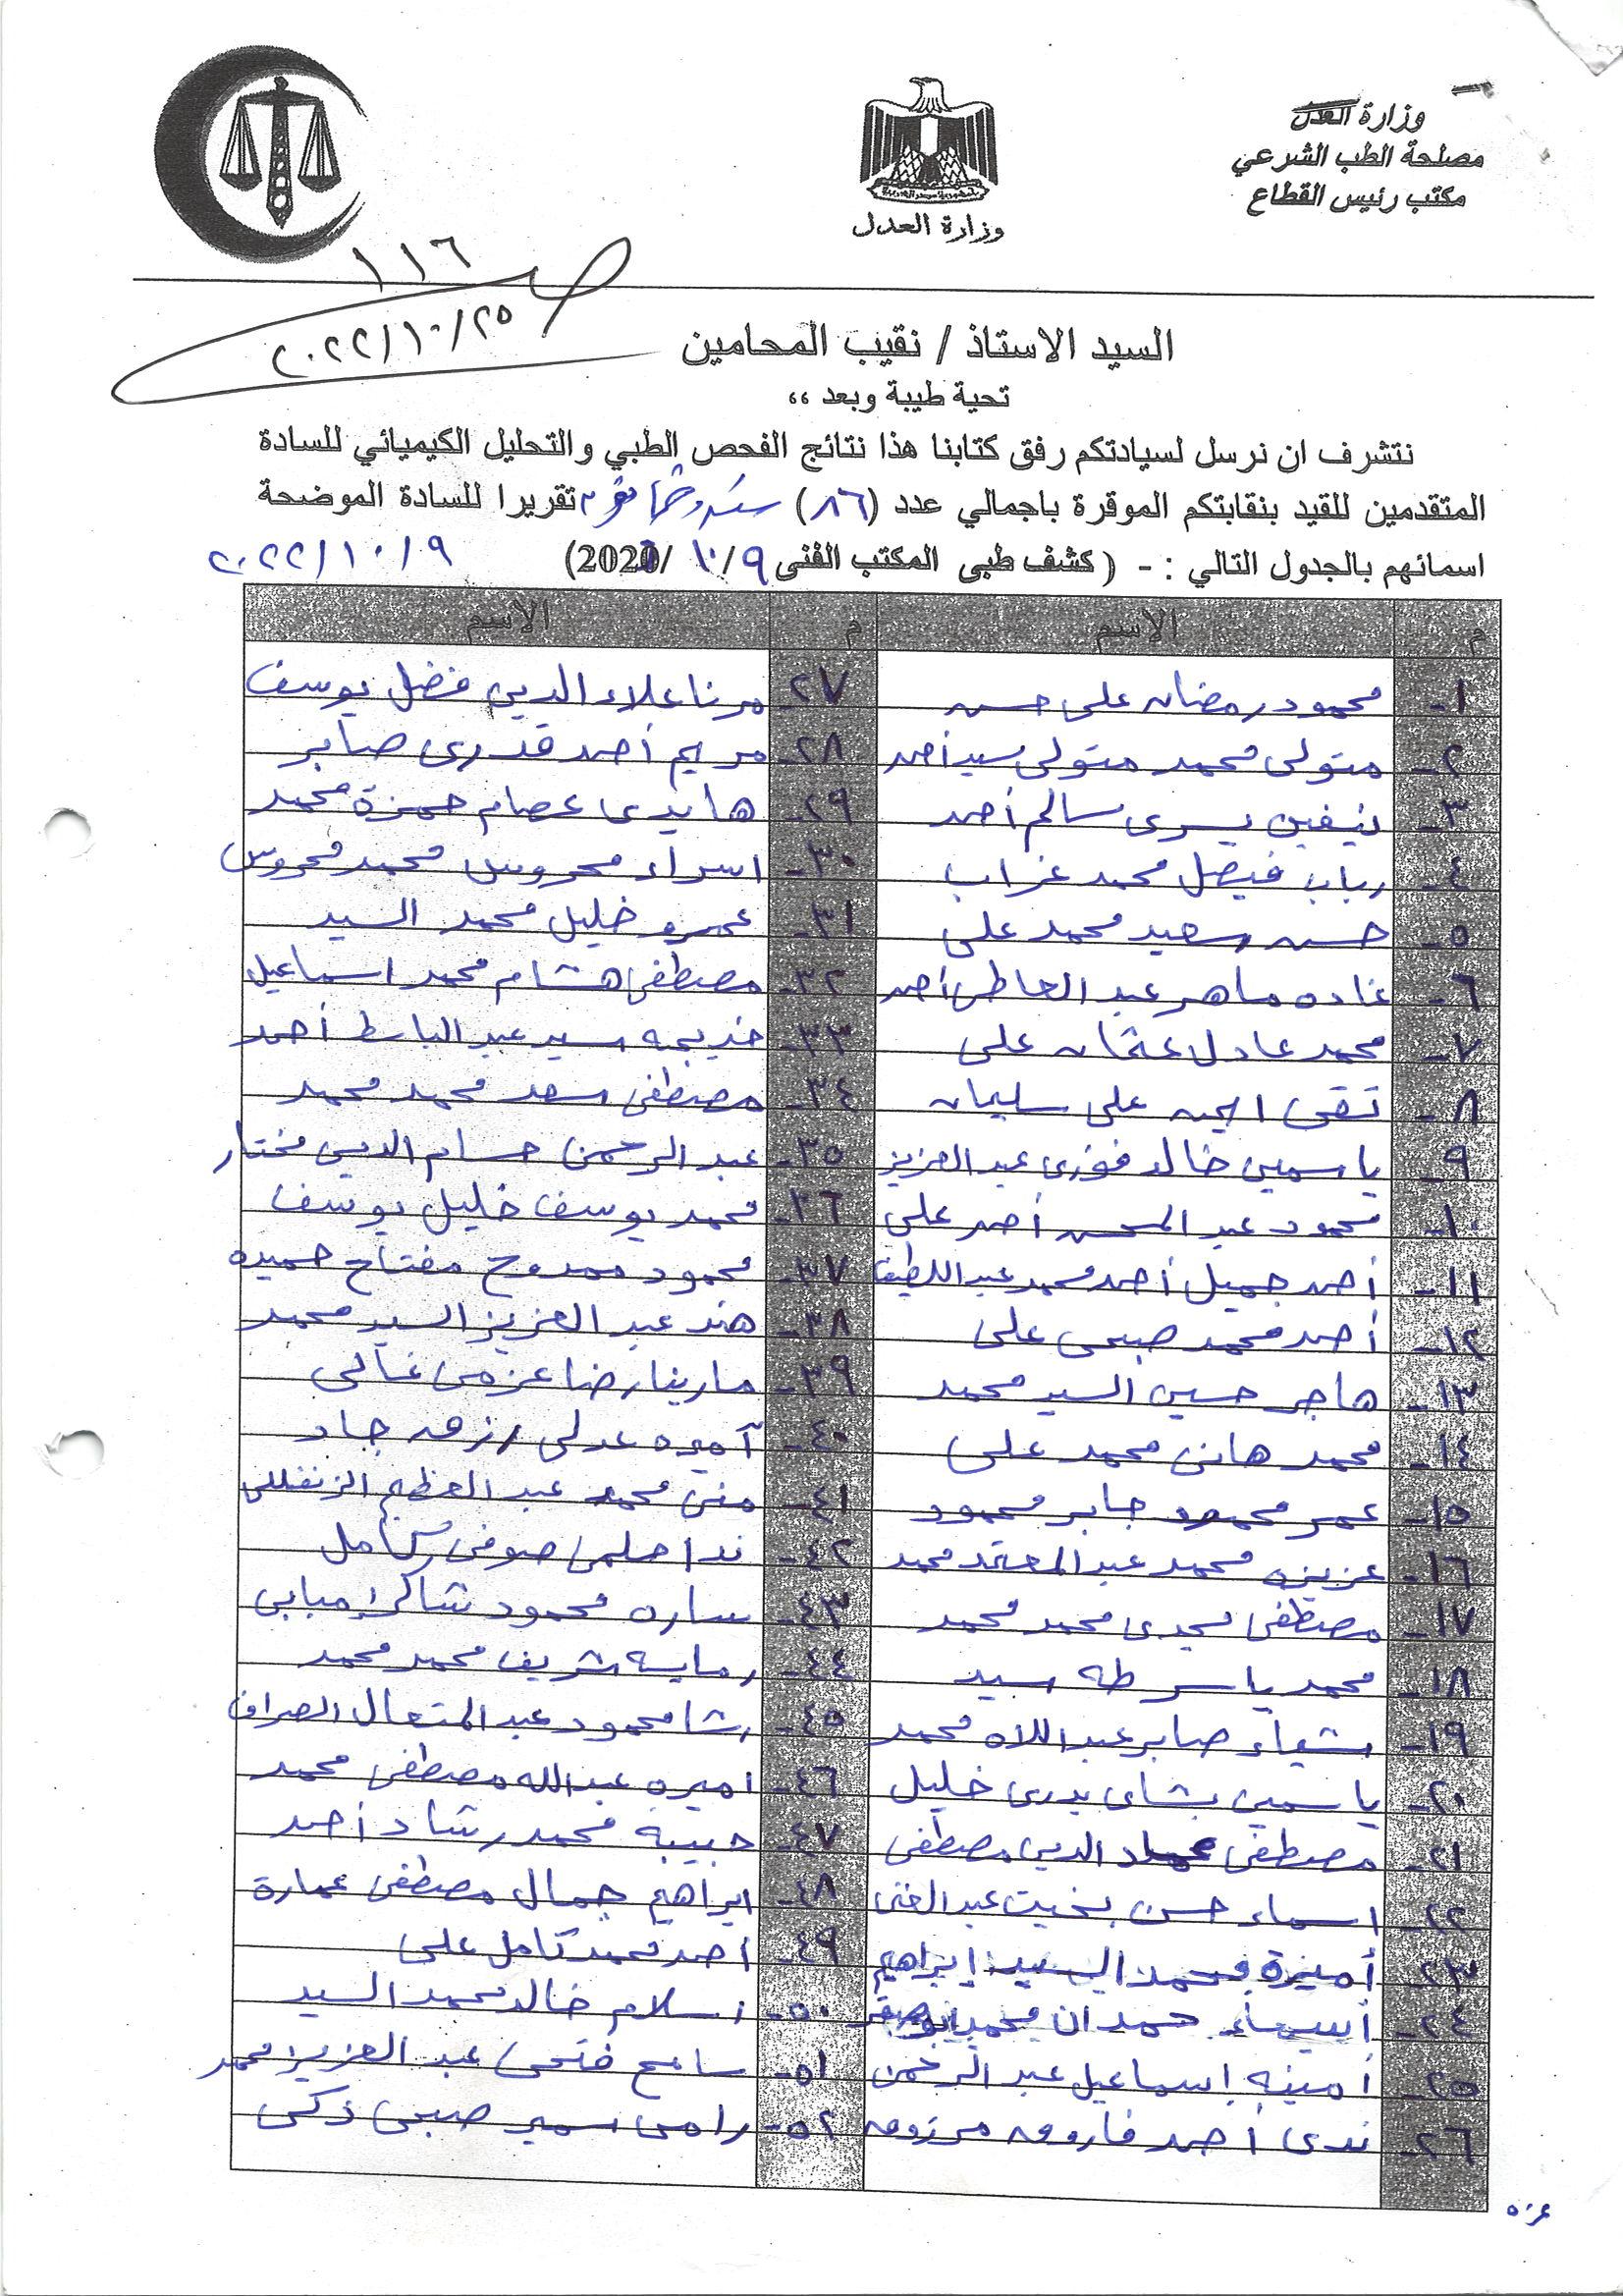 وزارة العدل
مصلحة الطب الشرعي
مكتب رئيس القطاع
وزارة العدل
ص ١١٦
٢٠٢٢/١٠/٢٥
السيد الاستاذ / نقيب المحامين
تحية طيبة وبعد ،،
نتشرف ان نرسل لسيادتكم رفق كتابنا هذا نتائج الفحص الطبي والتحليل الكيميائي للسادة
المتقدمين للقيد بنقابتكم الموقرة باجمالي عدد (٨٦) تقريرا للسادة الموضحة
اسمائهم بالجدول التالي : - ( كشف طبى المكتب الفنى ١٠/٩ /2020) ٢٠٢٢/١٠/٩
م الإسم م الإسم
١- محمود رمضان على حسن ٢٧- مرنا علاء الدين فضل يوسف
٢- متولى محمد متولى سيد أحمد ٢٨- مريم أحمد قدرى صابر
٣- نيفين يسرى سالم أحمد ٢٩- هايدى عصام حمزة محمد
٤- رباب فيصل محمد غراب ٣٠- اسراء محروس محمد محروس
٥- حسن سعيد محمد على ٣١- عمرو خليل محمد السيد
٦- غاده ماهر عبد العاطى أحمد ٣٢- مصطفى هشام محمد اسماعيل
٧- محمد عادل عثمان على ٣٣- خديجه سيد عبد الباسط أحمد
٨- تقى ايمن على سليمان ٣٤- مصطفى سعد محمد محمد
٩- ياسمين خالد فوزى عبد العزيز ٣٥- عبد الرحمن حسام الدين مختار
١٠- محمود عبد المحسن أحمد على ٣٦- محمد يوسف خليل يوسف
١١- أحمد جميل أحمد محمد عبد اللطيف ٣٧- محمود ممدوح مفتاح حميده
١٢- أحمد محمد صبحى على ٣٨- هند عبد العزيز السيد محمد
١٣- هاجر حسين السيد محمد ٣٩- مارينا رضا عزمى غالى
١٤- محمد هانى محمد على ٤٠- أميره عدلى رزق جاد
١٥- عمر محمود جابر محمود ٤١- منى محمد عبد العظيم الزنفلى
١٦- عزيزه محمد عبد المعتمد محمد ٤٢- ندا حلمى صوفى كامل
١٧- مصطفى مجدى محمد محمد ٤٣- ساره محمود شاكر إمبابى
١٨- محمد ياسر طه سيد ٤٤- شريف محمد محمد
١٩- شيماء صابر عبد اللاه محمد ٤٥- رشا محمود عبد المتعال الصراف
٢٠- ياسمين بشاى بدرى خليل ٤٦- اميره عبد الله مصطفى محمد
٢١- مصطفى عماد الدين مصطفى ٤٧- حبيبه محمد رشاد أحمد
٢٢- اسماء حسن بخيت عبد الغنى ٤٨- ابراهيم جمال مصطفى عمارة
٢٣- أميرة محمد السيد إبراهيم ٤٩- احمد محمد كامل على
٢٤- أسماء حمدان محمد ابو صقر ٥٠- اسلام خالد محمد السيد
٢٥- أمينه إسماعيل عبد الرحمن ٥١- سامح فتحى عبد العزيز محمد
٢٦- ندى أحمد فاروق مرزوق ٥٢- رامى سمير صبحى زكى